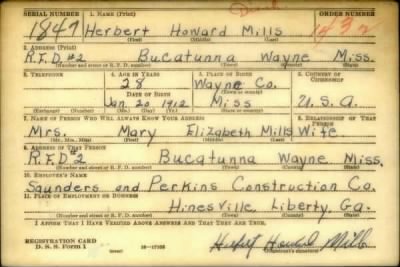 SERIAL NUMBER 1. NAME (Print) ORDER NUMBER
1847 Herbert Howard Mills
(First) (Middle) (Last)
2. ADDRESS (Print)
R.F.D #2 Bucatunna Wayne Miss.
(Number and street or R. F. D. number) (Town) (County) (State)
3. TELEPHONE 4. AGE IN YEARS 5. PLACE OF BIRTH 6. COUNTRY OF CITIZENSHIP
28 Wayne Co.
DATE OF BIRTH (Town or county)
Jan. 20 1912 Miss U.S.A.
(Exchange) (Number) (Mo.) (Day) (Yr.) (State or country)
7. NAME OF PERSON WHO WILL ALWAYS KNOW YOUR ADDRESS 8. RELATIONSHIP OF THAT PERSON
Mrs. Mary Elizabeth Mills Wife
(Mr., Mrs., Miss) (First) (Middle) (Last)
9. ADDRESS OF THAT PERSON
R.F.D #2 Bucatunna Wayne Miss.
(Number and street or R. F. D. number) (Town) (County) (State)
10. EMPLOYER'S NAME
Saunders and Perkins Construction Co.
11. PLACE OF EMPLOYMENT OR BUSINESS
Hinesville, Liberty, Ga.
(Number and street or R. F. D. number) (Town) (County) (State)
I AFFIRM THAT I HAVE VERIFIED ABOVE ANSWERS AND THAT THEY ARE TRUE.
REGISTRATION CARD
D. S. S. Form 1 Herbert Howard Mills